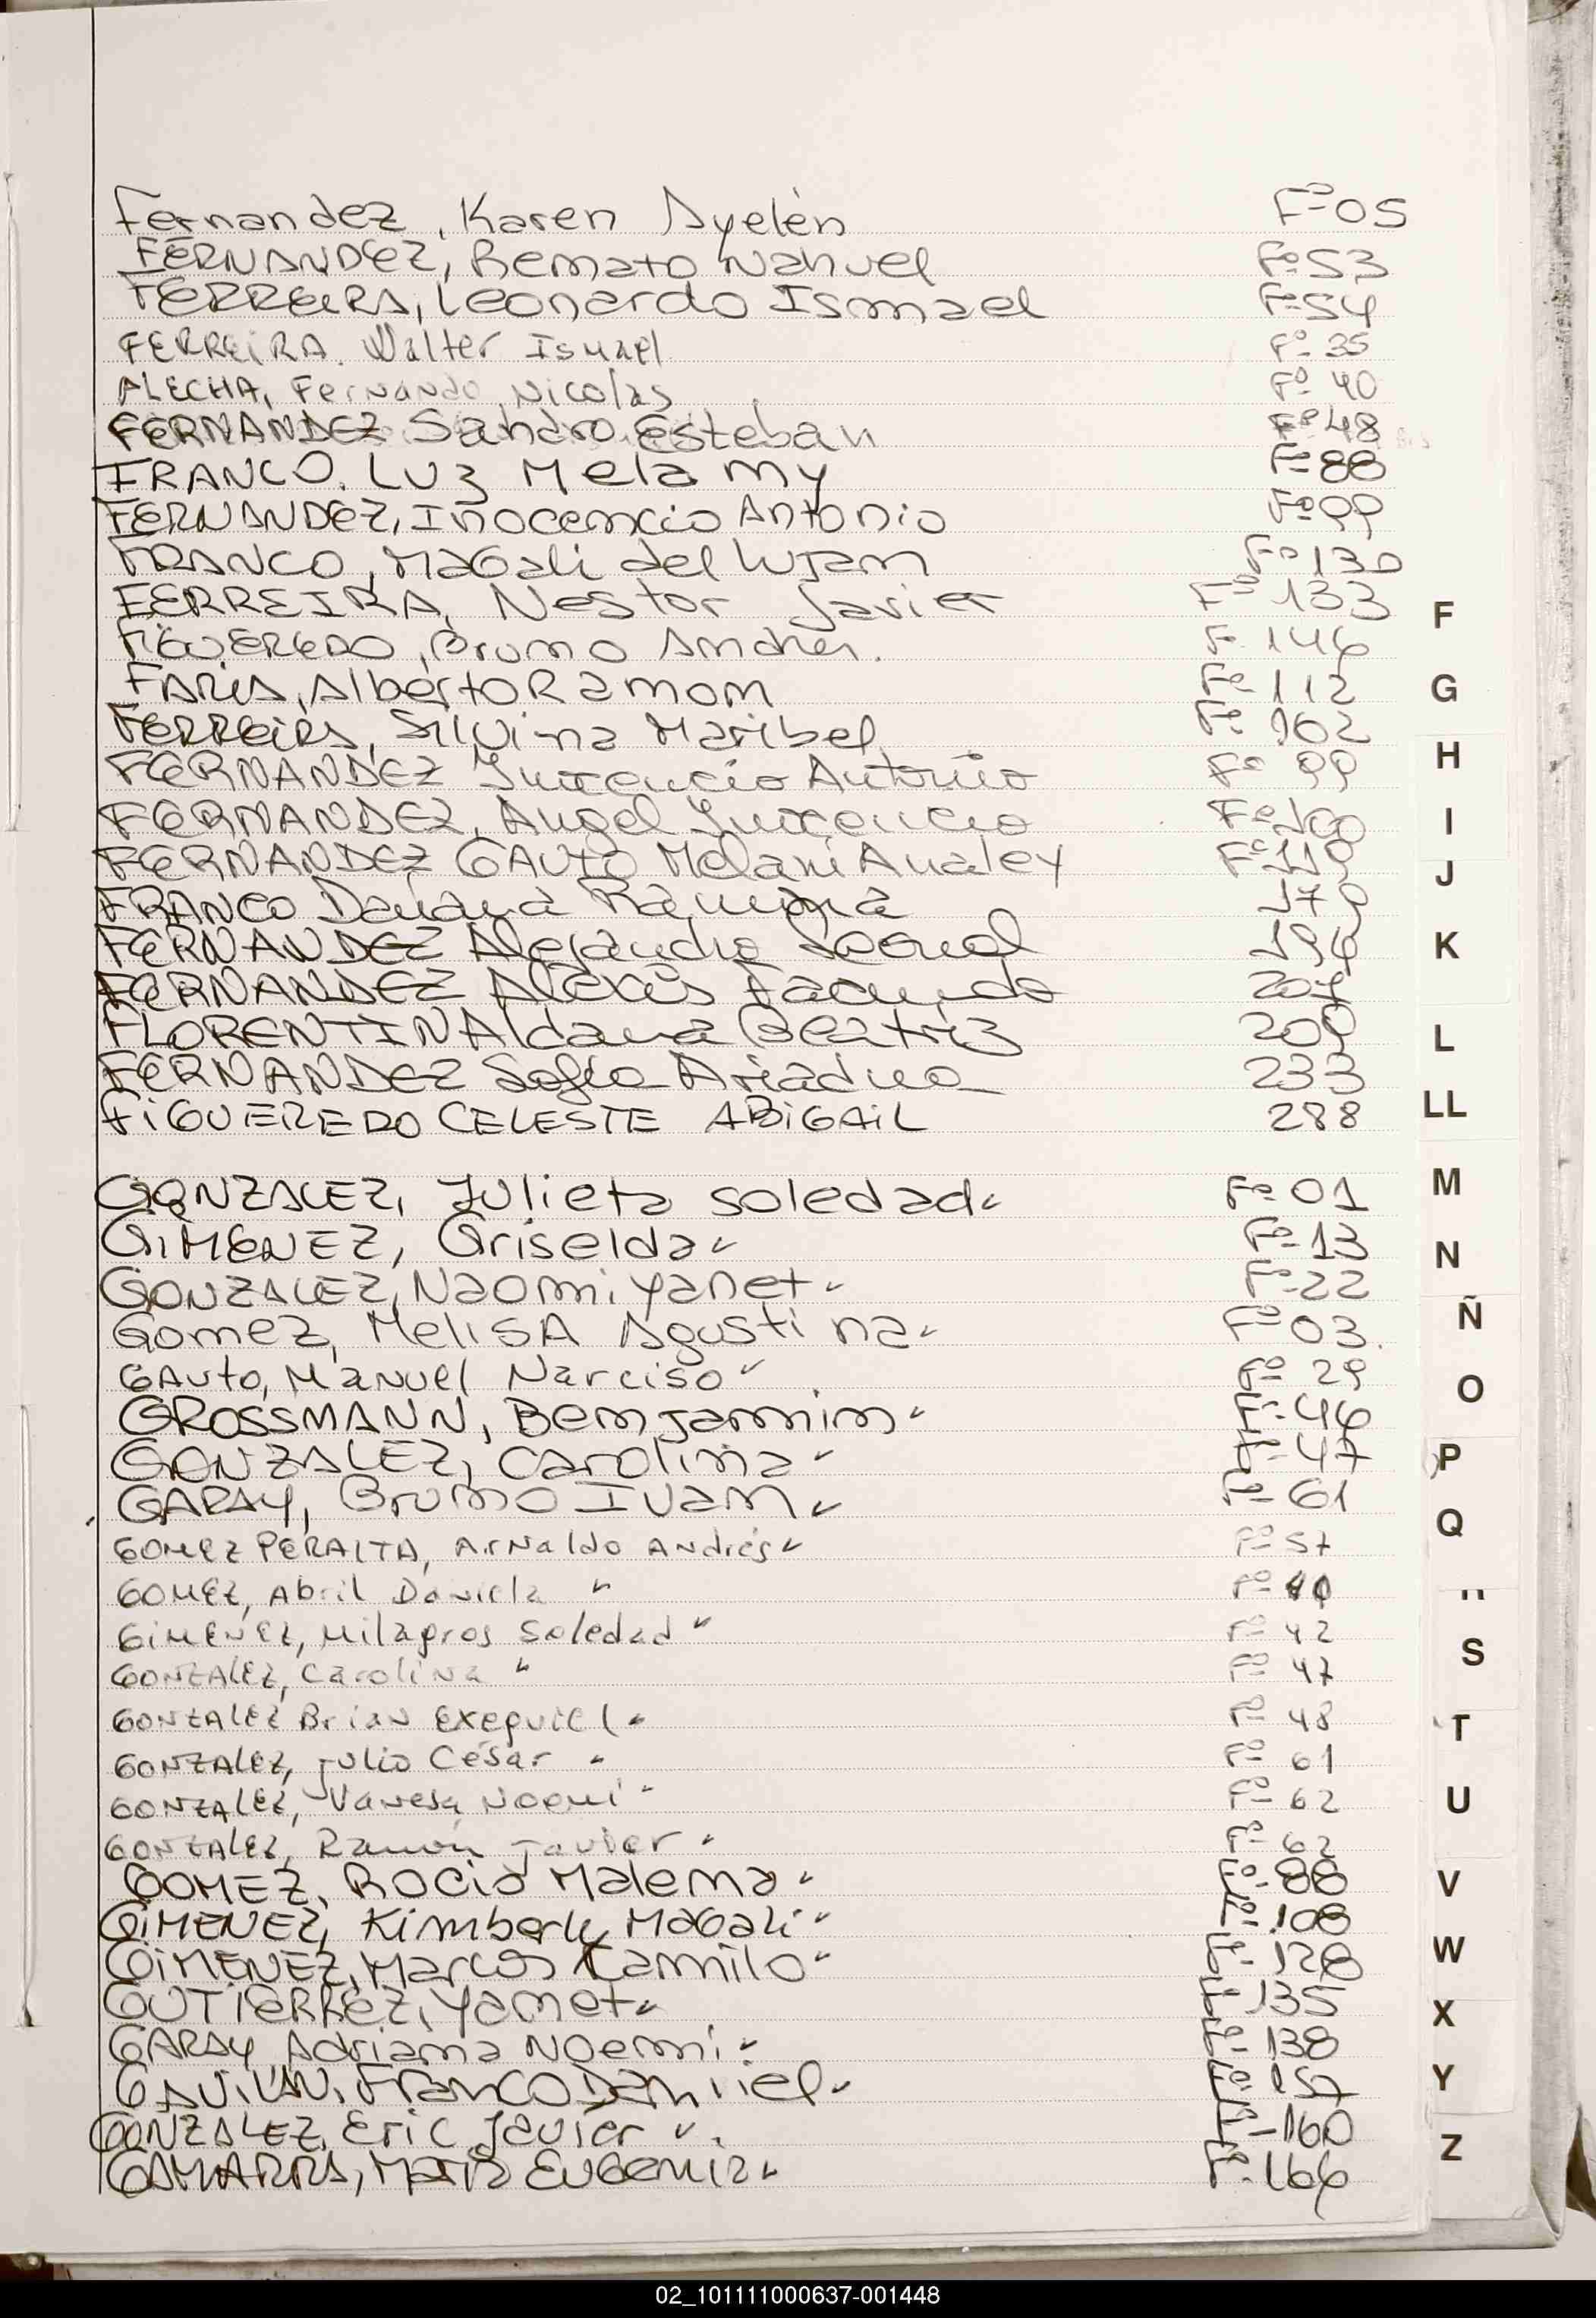 Fernandez, Karen Ayelén Fº 05
FERNANDEZ, Renato Nahuel Fº 53
FERREIRA, Leonardo Ismael Fº 54
FERREIRA. Walter Ismael Fº 35
FLECHA, Fernando Nicolas Fº 40
FERNANDEZ Sandro Esteban Fº 48
FRANCO. Luz Melamy Fº 88
FERNANDEZ, Inocencio Antonio Fº 99
FRANCO, Magali del Lujan Fº 130
FERREIRA, Nestor Javier Fº 133
FIGUEREDO, Bruno Andres. Fº 146
FARIA, Alberto Ramon Fº 112
FERREIRA, Silvina Maribel Fº 162
FERNANDEZ Inocencio Antonio Fº 99
FERNANDEZ, Angel Inocencio Fº 100
FERNANDEZ GAUTO Melani Analey Fº 119
FRANCO Daiana Ramona 179
FERNANDEZ Alejandro Leonel 196
FERNANDEZ Alexis Facundo 207
FLORENTIN Aldana Beatriz 209
FERNANDEZ Sofia Ariadna 233
FIGUEREDO CELESTE ABIGAIL 288
GONZALEZ, Julieta Soledad Fº 01
GIMENEZ, Griselda Fº 13
GONZALEZ, Naomi Yanet Fº 22
Gomez, MeliSA Agustina Fº 03
GAUTO, Manuel Narciso Fº 29
GROSSMANN, Benjammin Fº 46
GONZALEZ, Carolina Fº 47
GARAY, Bruno Ivan Fº 61
GOMEZ PERALTA, Arnaldo Andrés Fº 57
GOMEZ, Abril Daniela Fº 40
GIMENEZ, Milagros Soledad Fº 42
GONZALEZ, Carolina Fº 47
GONZALEZ Brian Exequiel Fº 48
GONZALEZ, Julio César Fº 61
GONZALEZ, Vanesa Noemi Fº 62
GONZALEZ, Ramón Javier Fº 62
GOMEZ, Rocio Malena Fº 88
GIMENEZ, Kimberly Magali Fº 108
GIMENEZ, Marcos Camilo Fº 128
GUTIERREZ, Yamet Fº 135
GARAY Adriana Noemi Fº 138
GAVILAN, Franco Daniel Fº 157
GONZALEZ, Eric Javier Fº 160
GAMARRA, Maria Eugenia Fº 166
F
G
H
I
J
K
L
LL
M
N
Ñ
O
P
Q
S
T
U
V
W
X
Y
Z
02_101111000637-001448